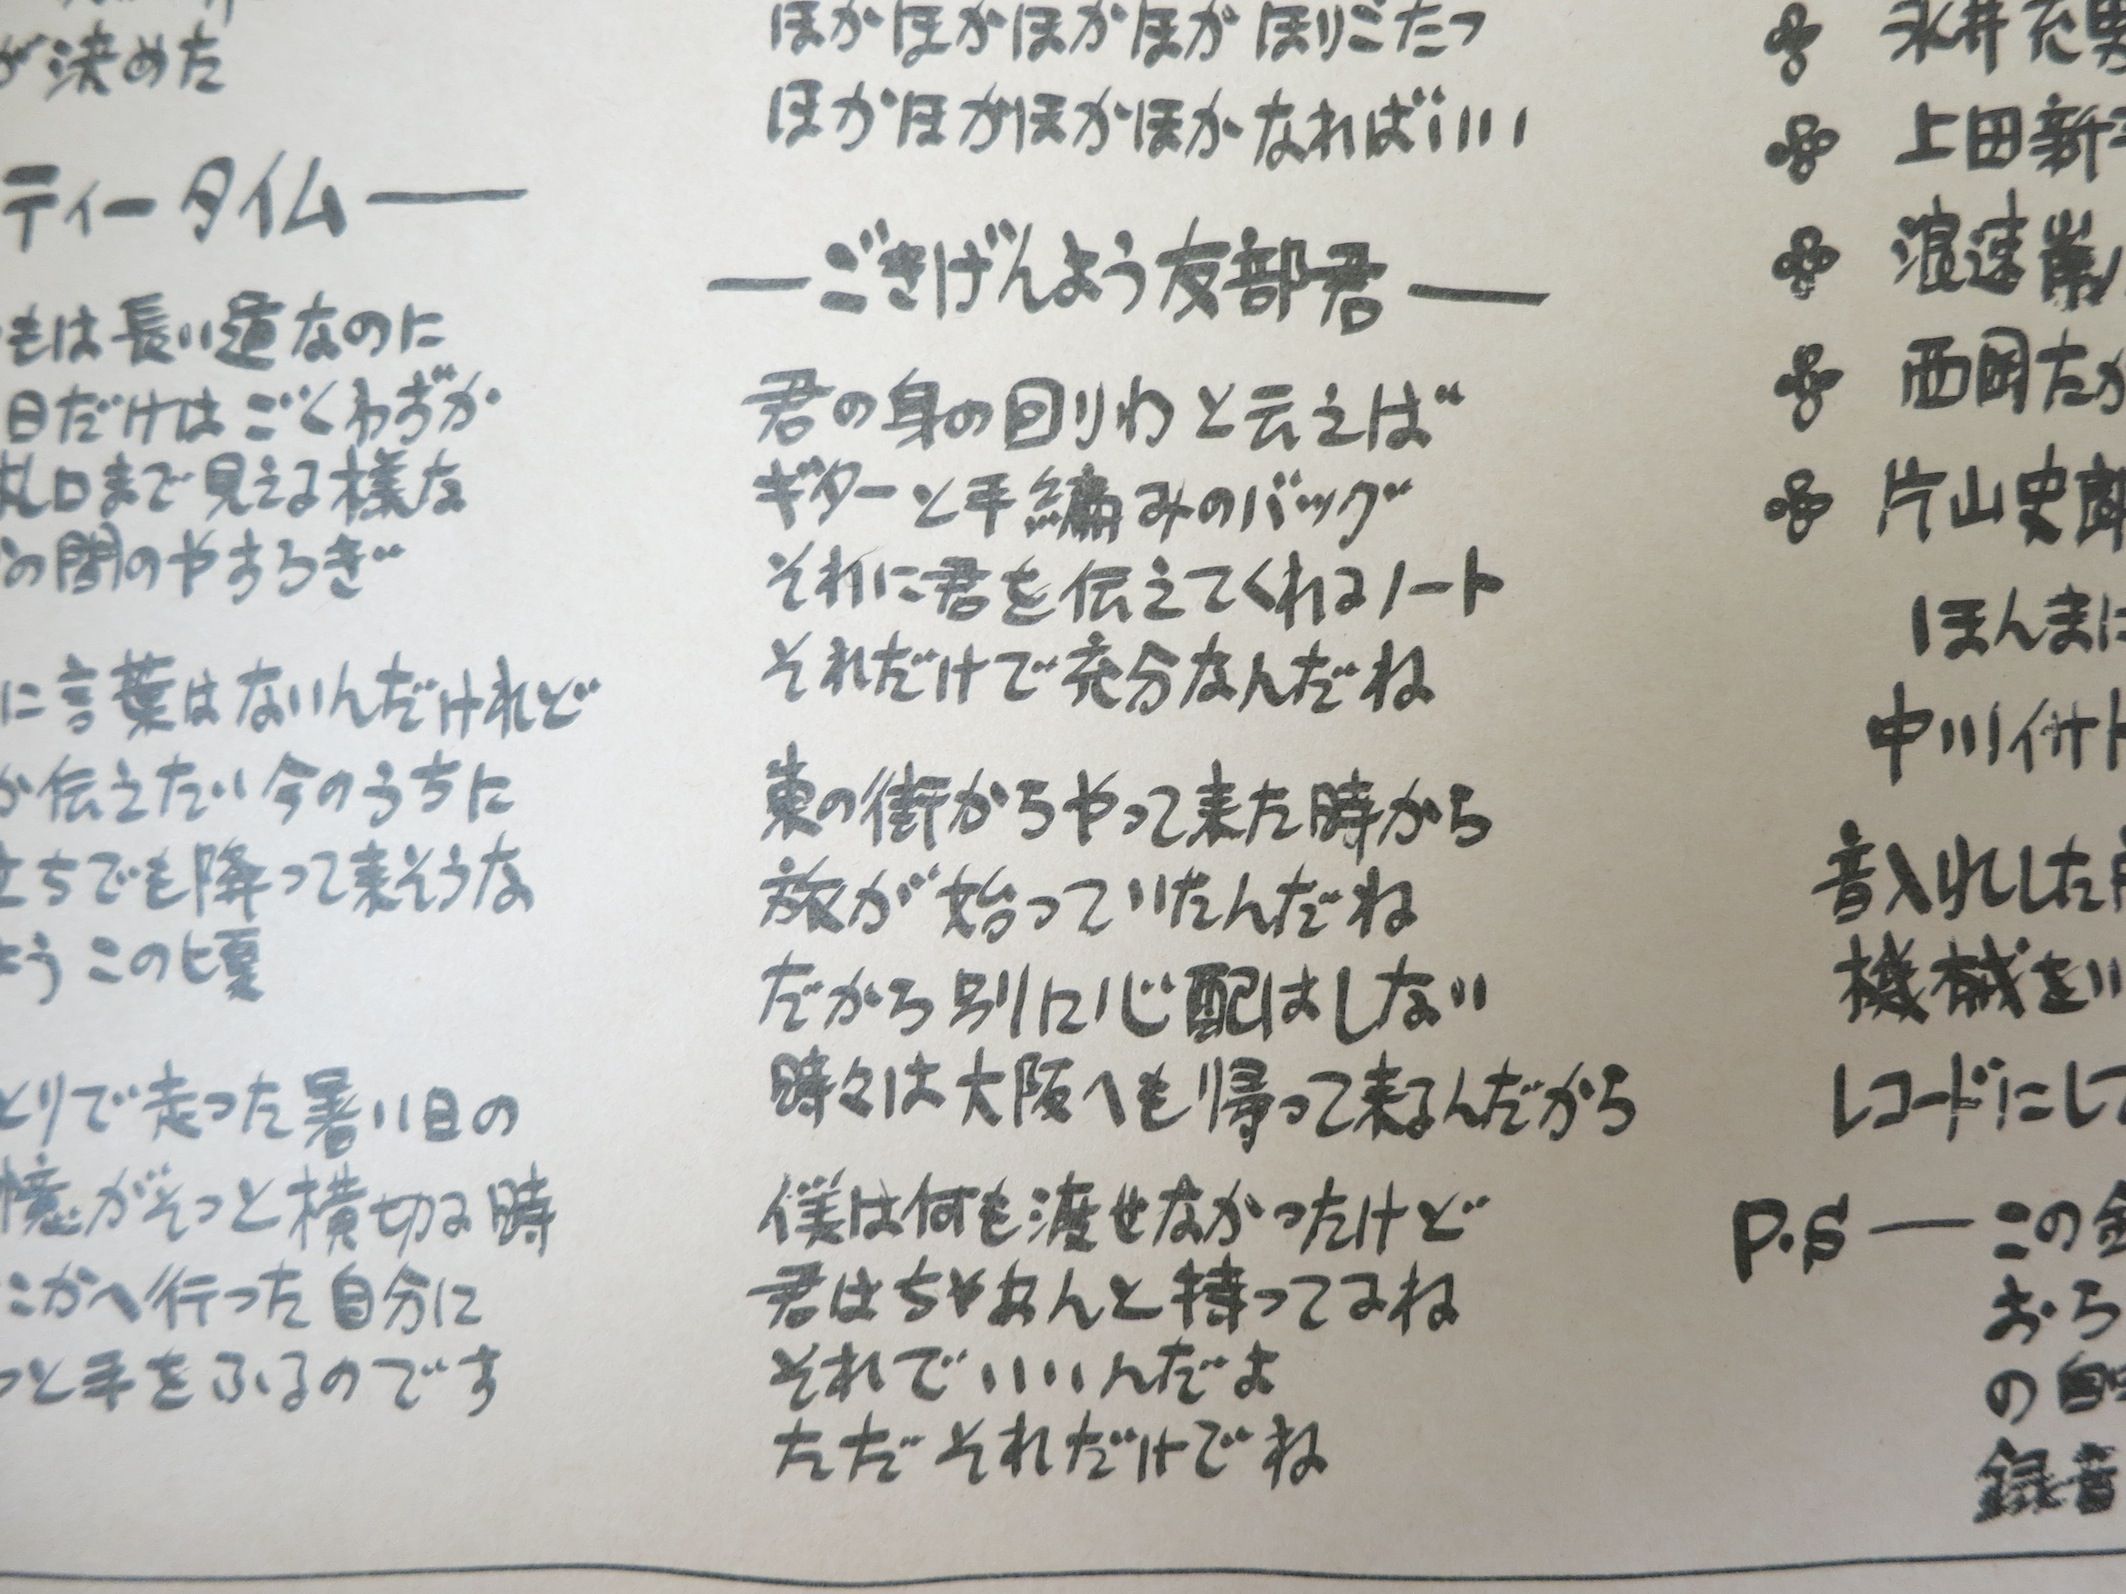 が決めた
ティータイム
もは長い道なのに
日だけはごくわずか
札口まで見える様な
の間のやすらぎ
に言葉はないんだけれど
か伝えたい今のうちに
立ちでも降って来そうな
ようこの頃
とりで走った暑い日の
憶がそっと横切る時
こかへ行った自分に
っと手をふるのです
ほかほかほかほかほりごたつ
ほかほかほかほかなればいいい
ごきげんよう友部君
君の身の回りわと云えば
ギターと手編みのバッグ
それに君を伝えてくれるノート
それだけで充分なんだね
東の街からやって来た時から
旅が始っていたんだね
だから別に心配はしない
時々は大阪へも帰って来るんだから
僕は何も渡せなかったけど
君はちゃあんと持ってるね
それでいいんだよ
ただそれだけでね
永井充男
上田新
浪速
西岡たか
片山史郎
ほんまに
中川イサト
音入れした
機械をい
レコードにして
P.S ― この
おち
の自
録音